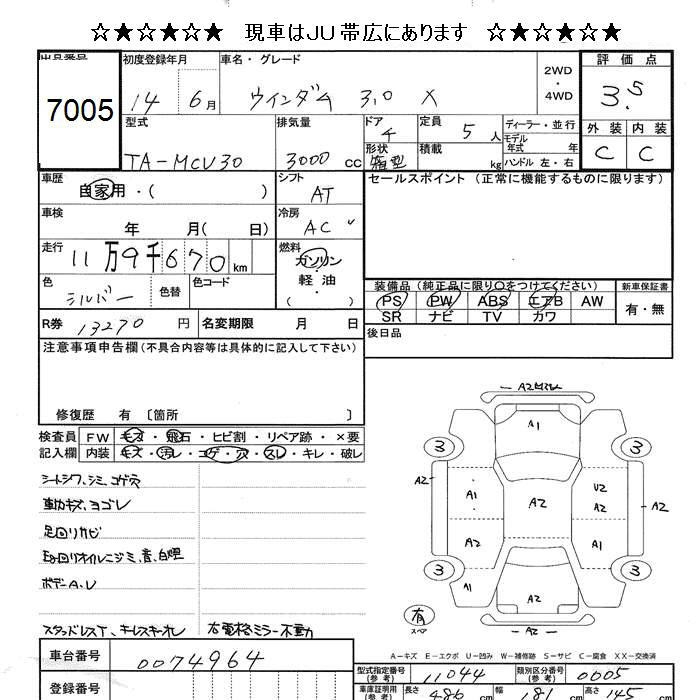 ☆★☆★☆★ 現車はJU帯広にあります ☆★☆★☆★
出品番号 初度登録年月 車名・グレード 評価点
7005 14 6月 ウインダム 3.0 X 2WD・4WD 3.5
外装 内装
C C
型式 排気量 ドア 4 定員 5人 ディーラー・並行
TA-MCV30 3000cc 形状 箱型 積載 kg モデル年式 年 ハンドル 左・右
車歴 自家用・( ) シフト AT セールスポイント (正常に機能するものに限ります)
車検 年 月( 日) 冷房 AC
走行 11万9千670km 燃料 ガソリン・軽油
色 シルバー 色替 色コード
装備品 (純正品に限り○をつけてください) 新車保証書
PS PW ABS エアB AW 有・無
SR ナビ TV カワ
R券 13270円 名変期限 月 日 後日品
注意事項申告欄 (不具合内容等は具体的に記入して下さい)
修復歴 有 〔箇所 〕
検査員記入欄 FW キズ・飛石・ヒビ割・リペア跡・×要
内装 キズ・汚レ・コゲ・穴・スレ・キレ・破レ
シートシワ、シミ、コゲ穴
車内キズ、ヨゴレ
足回リサビ
E/g回リオイルニジミ、音、白煙
ボデーA、U
スタッドレスT、キーレスキーオレ 右電格ミラー不動
A1
3 3
A2 A1 A2 U2 A2
A2 A1
3 3
A2
有 スペア
A2
A-キズ E-エクボ U-凹み W-補修跡 S-サビ C-腐食 XX-交換済
車台番号 0074964
型式指定番号(参考) 11044 類別区分番号(参考) 0005
登録番号
車庫証明用(参考) 長さ 486cm 幅 181cm 高さ 145cm